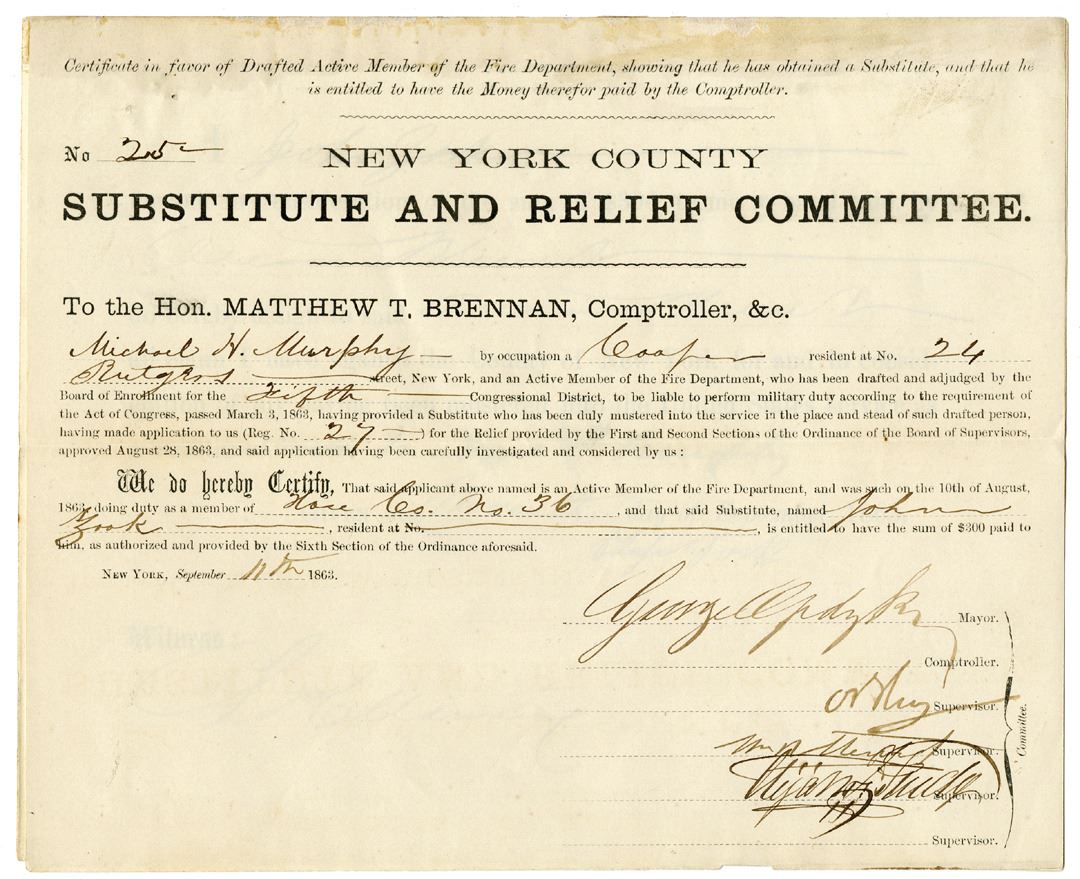 Certificate in favor of Drafted Active Member of the Fire Department, showing that he has obtained a Substitute, and that he
is entitled to have the Money therefor paid by the Comptroller.
No 25
NEW YORK COUNTY
SUBSTITUTE AND RELIEF COMMITTEE.
To the Hon. MATTHEW T. BRENNAN, Comptroller, &c.
Michael H. Murphy by occupation a Cooper resident at No. 24
Rutgers street, New York, and an Active Member of the Fire Department, who has been drafted and adjudged by the
Board of Enrollment for the Fifth Congressional District, to be liable to perform military duty according to the requirement of
the Act of Congress, passed March 3, 1863, having provided a Substitute who has been duly mustered into the service in the place and stead of such drafted person,
having made application to us (Reg. No. 27) for the Relief provided by the First and Second Sections of the Ordinance of the Board of Supervisors,
approved August 28, 1863, and said application having been carefully investigated and considered by us :
We do hereby Certify, That said applicant above named is an Active Member of the Fire Department, and was such on the 10th of August,
1863, doing duty as a member of Hose Co. No. 36, and that said Substitute, named John
Zook, resident at No. , is entitled to have the sum of $300 paid to
him, as authorized and provided by the Sixth Section of the Ordinance aforesaid.
NEW YORK, September 11th 1863.
George Opdyke Mayor.
Comptroller.
Supervisor.
Supervisor.
Supervisor.
Supervisor.
Committee.